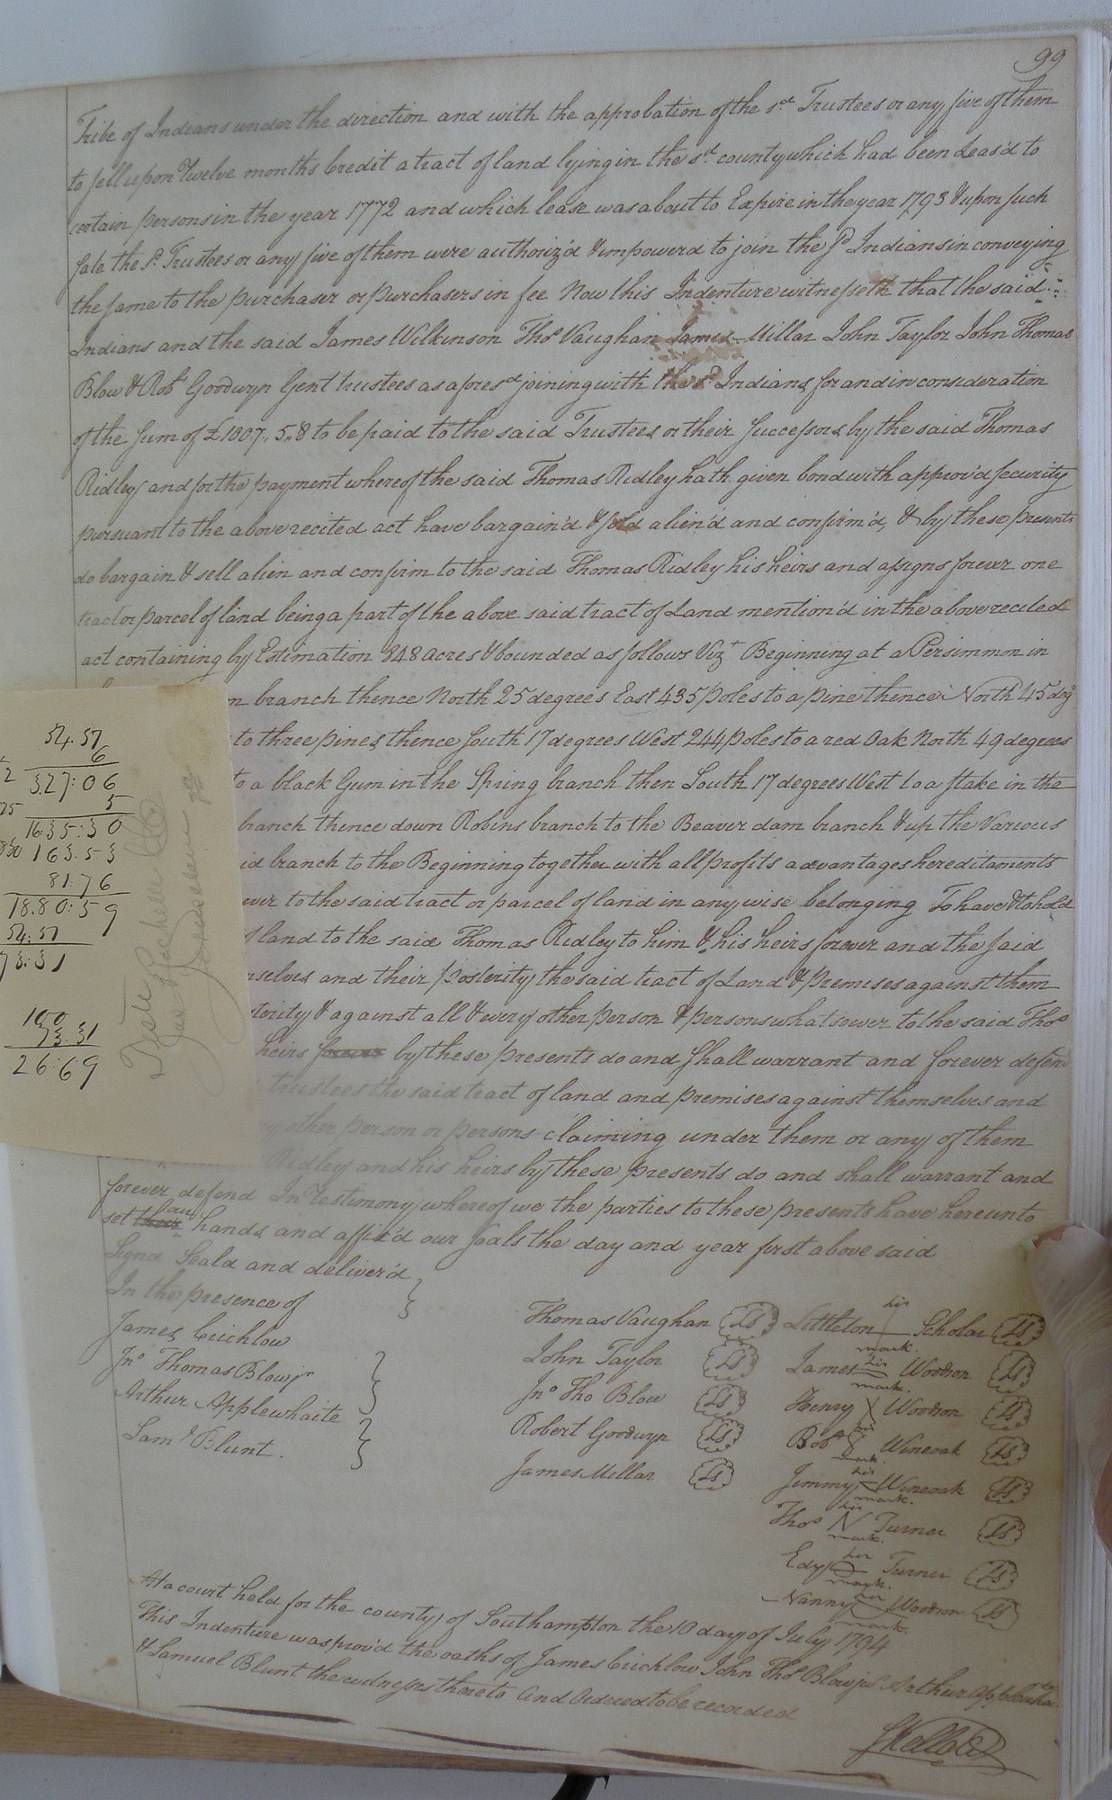 99
Tribe of Indians under the direction and with the approbation of the sd Trustees or any five of them
to sell upon Twelve months Credit a tract of land lying in the sd county which had been Leas'd to
certain persons in the year 1772 and which lease was about to Expire in the year 1793 & upon such
sale the sd Trustees or any five of them were authoriz'd & impowerd to join the sd Indians in conveying
the same to the purchaser or purchasers in fee Now this Indenture witnesseth that the said
Indians and the said James Wilkinson Thos Vaughan James Millar John Taylor John Thomas
Blow & Robt Goodwyn Gent trustees as afores'd joining with the sd Indians for and in consideration
of the sum of £1007..5..8 to be paid to the said Trustees or their successors by the said Thomas
Ridley and for the payment whereof the said Thomas Ridley hath given bond with approv'd security
pursuant to the above recited act have bargain'd & sold alien'd and confirm'd, & by these presents
do bargain & sell alien and confirm to the said Thomas Ridley his heirs and assigns forever one
tract or parcel of land being a part of the above said tract of Land mention'd in the above recited
act containing by Estimation 848 acres & bounded as follows Vizt Beginning at a Persimmon in
branch thence North 25 degrees East 435 poles to a pine thence North 45 deg
to three pines thence South 17 degrees West 244 poles to a red Oak North 49 degrees
to a black Gum in the Spring branch then South 17 degrees West to a stake in the
branch thence down Robins branch to the Beaver dam branch & up the Various
id branch to the Beginning together with all profits advantages hereditaments
ever to the said tract or parcel of land in any wise belonging To have & to hold
land to the said Thomas Ridley to him & his heirs forever and the said
nselves and their posterity the said tract of Land & Premises against them
terity & against all & every other person & persons whatsoever to the said Thos
heirs forever by these presents do and shall warrant and forever defen
trustees the said tract of land and premises against themselves and
other person or persons claiming under them or any of them
Ridley and his heirs by these presents do and shall warrant and
forever defend In Testimony whereof we the parties to these presents have hereunto
set their our hands and affix'd our seals the day and year first above said
Signd Seald and deliver'd
In the presence of
James Crichlow
Jno Thomas Blow jr
Arthur Applewhaite
Saml Blunt.
Thomas Vaughan LS
John Taylor LS
Jno Tho Blow LS
Robert Goodwyn LS
James Millar LS
Littleton his mark. Scholar LS
James his mark. Woodson LS
Henry Woodson LS
Bob his mark. Wineoak LS
Jimmy his mark. Wineoak LS
Thos his mark. Turner LS
Edy his mark. Turner LS
Nanny her mark. Woodson LS
At a court held for the county of Southampton the 10 day of July 1794
This Indenture was prov'd the oaths of James Crichlow John Thos Blow jr Arthur Applewhaite
& Samuel Blunt the witnesses thereto and Ordered to be recorded
54.51
6
2 327:06
75 5
1635:30
163.53
81:76
18.80:59
54:51
73:31
100
73.31
26:69